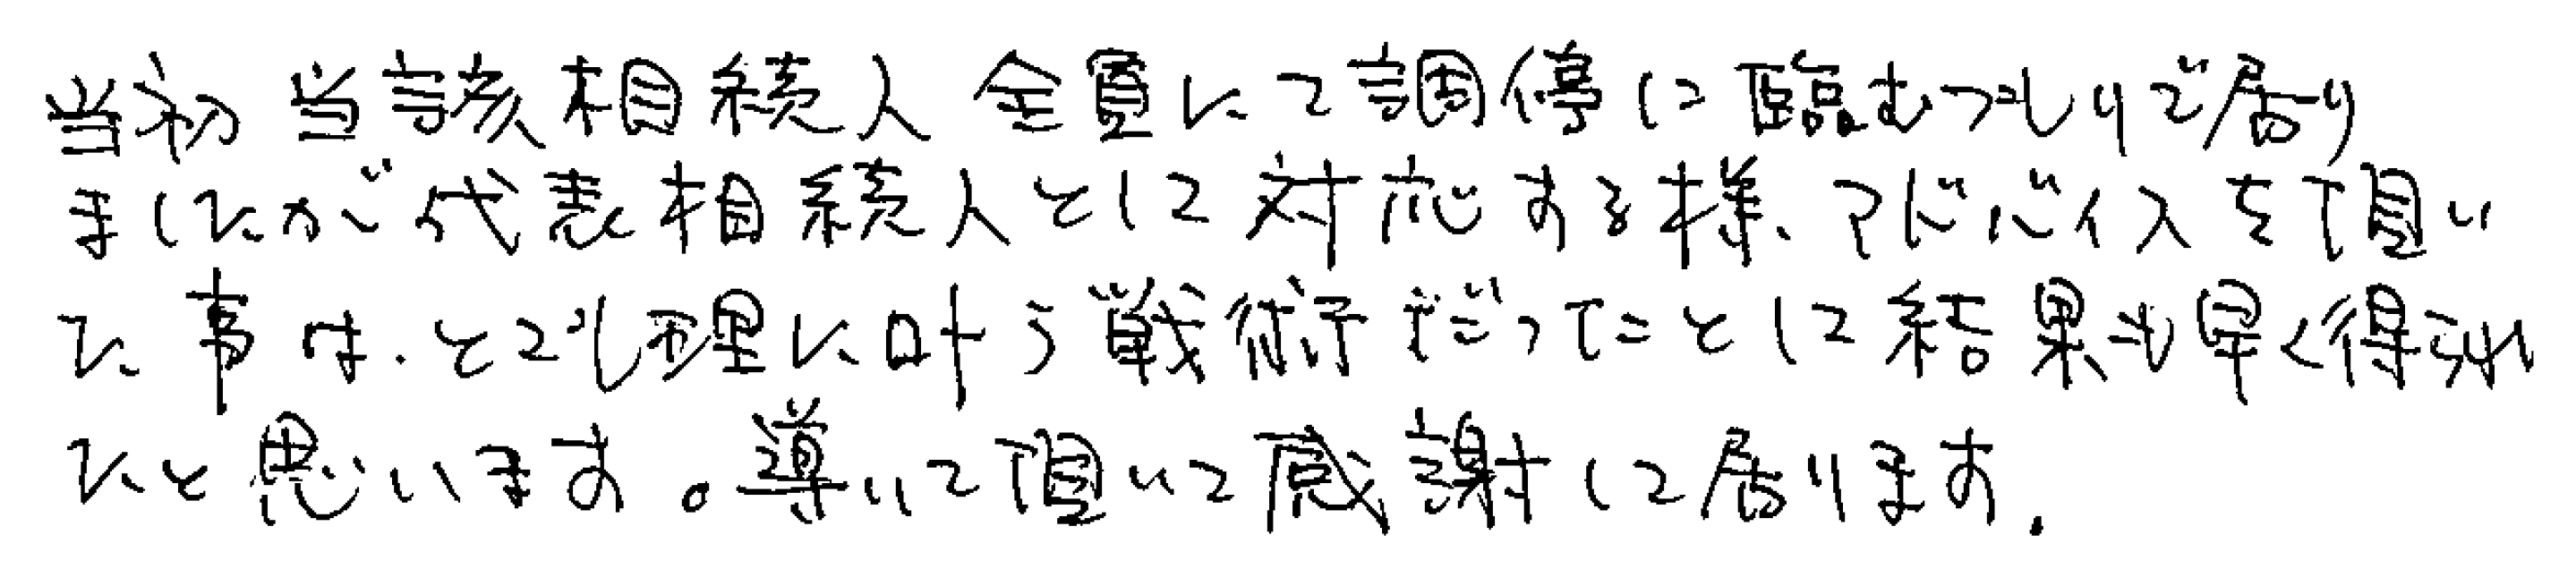 当初 当該相続人 全員にて調停に臨むつもりで居り
ましたが代表相続人として対応する様、アドバイスを頂い
た事は、とても理に叶う戦術だったことして結果も早く得られ
たと思います。導いて頂いて感謝して居ります。